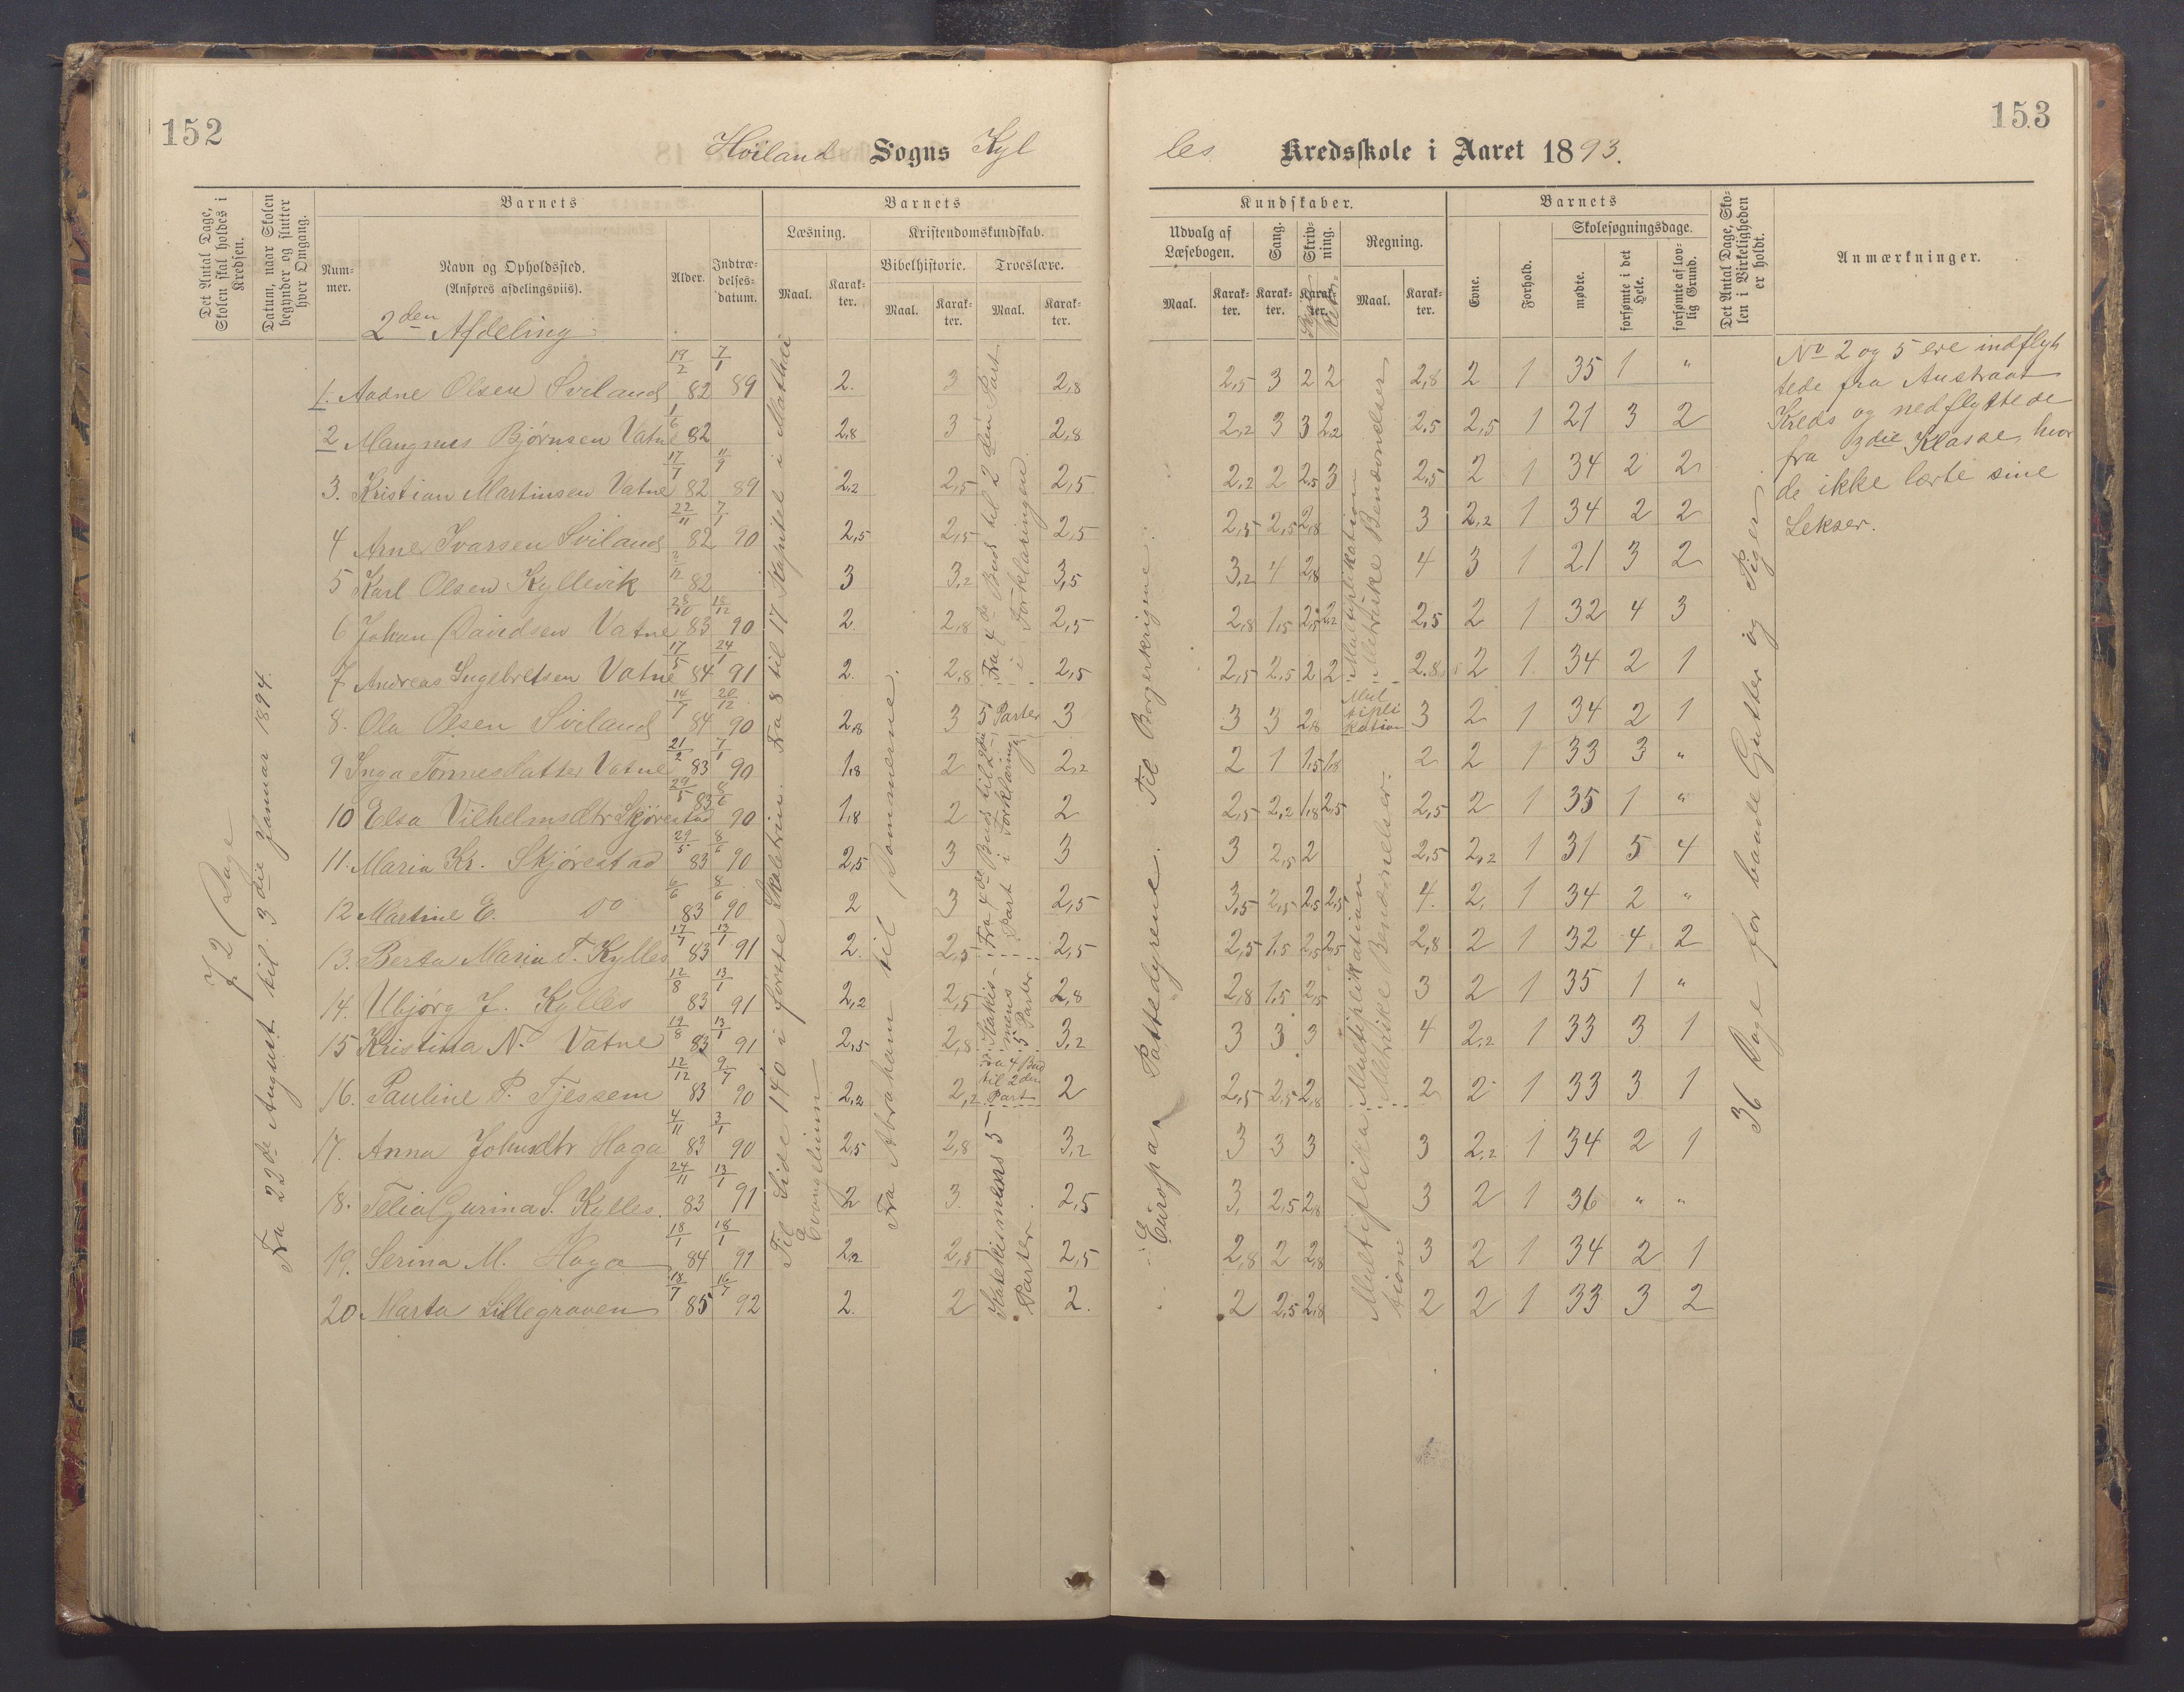 152
Höiland Sogns Kyl
Det Antal Dage, Skolen skal holdes i Kredsen.
Datum, naar Skolen begynder og slutter hver Omgang.
Barnets
Num-mer.
Navn og Opholdssted. (Anføres afdelingsviis).
Alder.
Indtræ-delses-datum.
Barnets
Læsning.
Maal.
Karak-ter.
Kristendomskundskab.
Bibelhistorie.
Maal.
Karak-ter.
Troeslære.
Maal.
Karak-ter.
2den Afdeling
72 Dage
Fra 22de August til 3die Januar 1894.
1. Aadne Olsen Sviland 19/2 82 7/1 89 2. 3 2,8
2 Mangnus Bjørnsen Vatne 1/6 82 2,8 3 2,8
3. Kristian Martinsen Vatne 17/7 82 11/9 89 2,2 2,5 2,5
4 Arne Ivarsen Sviland 22/11 82 7/1 90 2,5 2,5 2,5
5 Karl Olsen Kyllevik 2/12 82 3 3,2 3,5
6 Johan Davidsen Vatne 28/10 83 18/12 90 2. 2,8 2,5
7 Andreas Ingebretsen Vatne 17/5 84 24/1 91 2. 2,8 2,5
8. Ola Olsen Sviland 14/7 84 20/12 90 2,8 3 3
9 Inga Tønnesdatter Vatne 21/2 83 7/1 90 1,8 2 2,2
10 Elsa Vilhelmsdtr Skjørestad 29/5 83 8/6 90 1,8 2 2
11. Maria Kr. Skjørestad 29/5 83 8/6 90 2,5 3 3
12 Martine E. do 6/6 83 8/6 90 2 3 2,5
13. Berta Maria T. Kylles 17/7 83 13/1 91 2. 2,5 2,5
14. Ubjørg J. Kylles 12/8 83 13/1 91 2,2 2,5 2,8
15 Kristina N. Vatne 19/8 83 13/1 91 2,5 2,8 3,2
16. Pauline P. Tjessem 12/12 83 9/7 90 2,2 2,2 2
17. Anna Johnsdtr Haga 4/11 83 3/1 90 2,5 2,8 3,2
18. Telia Gurina S. Kylles. 24/11 83 13/1 91 2 3. 2,5
19. Serina M. Haga 18/1 84 18/1 91 2,2 2,5 2,5
20 Marta Lillegraven 18/7 85 16/7 92 2. 2 2.
Til Side 140 i første Skoletrin. Fra 8 til 17 Kapitel i Mathæi
Evangelium
Fra Abraham til Dommerne.
Fra 4de Bud til 2den Part
i Forklaringen.
5 Parter
Fra 4de Bud til 2den
Part i Forklaring
Katekis-
mens
5 Parter
Fra 4 Bud
til 2den
Part
Katekismens 5
Parter.
153
les Kredsskole i Aaret 1893.
Kundskaber.
Udvalg af Læsebogen.
Maal.
Karak-ter.
Sang.
Karak-ter.
Skriv-ning.
Karak-ter.
Regning.
Maal.
Karak-ter.
Barnets
Evne.
Forhold.
Skolesøgningsdage.
mødte.
forsømte i det Hele.
forsømte af lov-lig Grund.
Det Antal Dage, Sko-len i Virkeligheden er holdt.
Anmærkninger.
2,5 3 2 2 2,8 2 1 35 1 "
2,2 3 3 2,2 2,5 2,5 1 21 3 2
2,2 2 2,5 3 2,5 2 1 34 2 2
2,5 2,5 2,8 3 2,2 1 34 2 2
3,2 4 2,8 4 3 1 21 3 2
2,8 1,5 2,5 2,2 2,5 2 1 32 4 3
2,5 2,5 2 2 2.8 2 1 34 2 1
3 3 2,8 3 2 1 34 2 1
2 1 1,5 1,8 2 2 1 33 3 "
2,5 2,2 1,8 2,5 2,5 2 1 35 1 "
3 2,5 2 2,5 2,2 1 31 5 4
3,5 2,5 2,5 2,5 4. 2. 1 34 2 "
2,5 1,5 2,5 2,5 2,8 2 1 32 4 2
2,8 1,5 2,5 3 2 1 35 1 "
3 3 3 4 2,2 1 33 3 1
2,5 2,5 2,8 2 2 1 33 3 1
3 3 3 3 2,2 1 34 2 1
3. 2,5 2,8 3 2 1 36 " "
2,8 2 2,8 3 2 1 34 2 1
2 2,5 2,8 2 2 1 33 3 2
Europa. Pattedyrene. Til Borgerkrigene.
Multiplikation
Metriske Benævnelser
Mul
tipli
kation
Multiplikation
Metriske Benævnelser.
Multiplika
tion
36 Dage for baade Gutter og Piger.
No 2 og 5 ere indflyt
tede fra Austraat
Kreds og nedflyttede
fra 3die Klasse, hvor
de ikke lærte sine
Lekser.